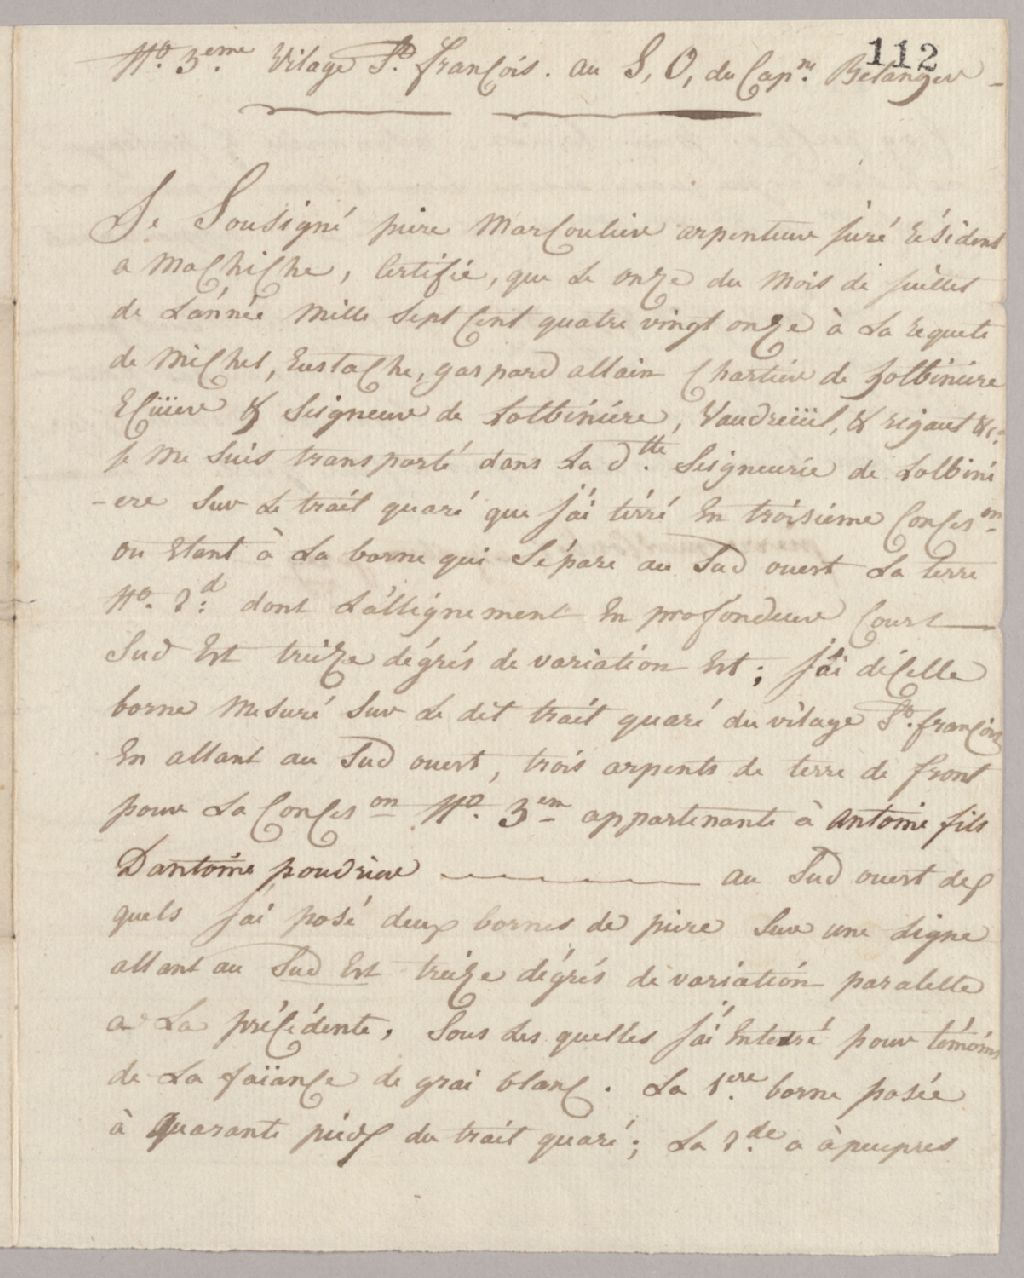 112
No. 3.eme Vilage St. françois. au S, O, du Capne. Belanger -
Je Sousigné pière Marcoulier arpenteur juré Résident
a Machiche, Certifie, que Le onze du Mois de juillet
de L'année Mille Sept Cent quatre vingt onze à La Requete
de Michel, Eustache, gaspard allain Chartier de Lotbinière
Ecüier & Seigneur de Lotbiniére, Vaudreüil, & rigaut &c.
je Me Suis transporté dans La dtte. Seigneurie de Lotbini
-ere Sur Le trait quaré que j'ai tirré En troisième Concesson
ou Etant à La borne qui Sépare au Sud ouest La terre
No. 2.d dont L'allignement En profondeur Court —
Sud Est treize dégrés de variation Est; j'ai dicelle
borne Mesuré Sur Le dit trait quaré du vilage St. françois
En allant au Sud ouest, trois arpents de terre de front
pour La Conceson No. 3em appartenante à antoine fils
Dantoine poudrier ——— au Sud ouest des
quels J'ai posé deux bornes de pière Sur une Ligne
allant au Sud Est treize dégrés de variation paralelle
a La précédente, Sous Les quelles j'ai Enterré pour témoins
de La faïance de grai blanc. La 1ere. borne posée
à Quarante piéds du trait quaré; La 2.de a àpeuprés